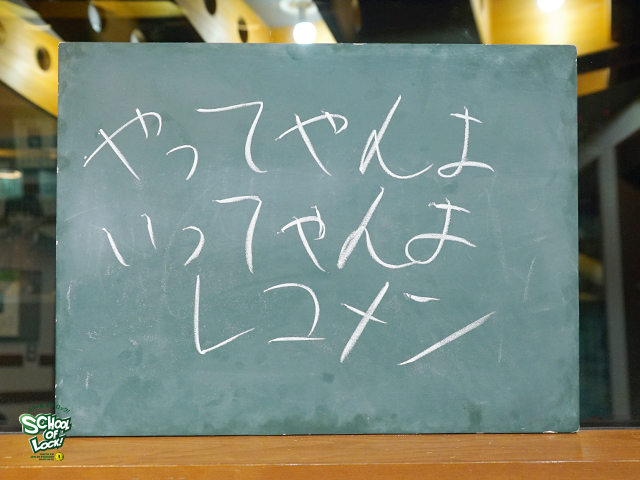 やってやんよ
いってやんよ
レコメン
SCHOOL
OF
LOCK!